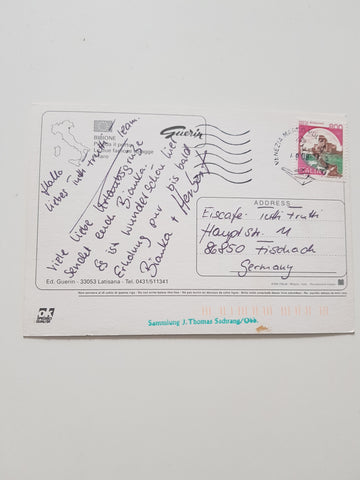 BIBIONE
Guerin
VENEZIA
800
Hallo
liebes tutti frutti Team.
Viele liebe Urlaubsgrüsse
sendet euch Bianka.
Es ist wunderschön hier
Erholung pur bis bald
Bianka + Herbert
Ed. Guerin - 33053 Latisana - Tel. 0431/511341
ADDRESS
Eiscafe Tutti Frutti
Hauptstr. 11
86850 Fischach
Germany
ok
Sammlung J. Thomas Sachrang/Obb.